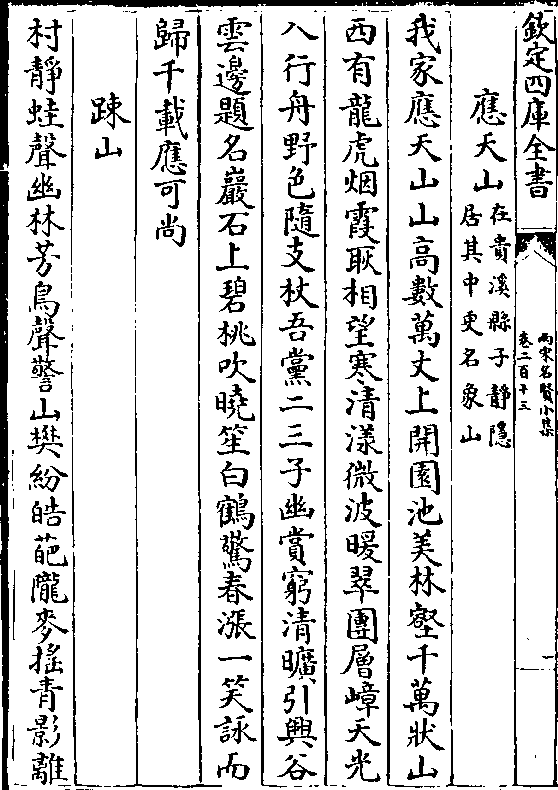 欽定四庫全書
兩宋名賢小集
卷二百十三
一
應天山
在貴溪縣子靜隱
居其中更名象山
我家應天山山高數萬丈上開園池美林壑千萬狀山
西有龍虎烟霞耿相望寒清漾微波暖翠團層嶂天光
入行舟野色隨支杖吾黨二三子幽賞窮清曠引興谷
雲邊題名巖石上碧桃吹曉笙白鶴驚春漲一笑詠而
歸千載應可尚
踈山
村靜蛙聲幽林芳鳥聲警山樊紛皓葩隴麥摇青影離